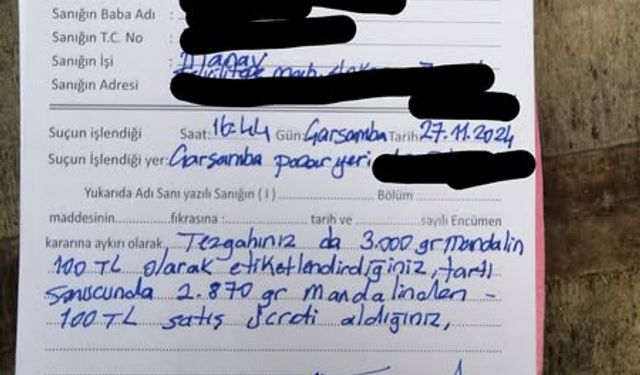 Sanığın Baba Adı :
Sanığın T.C. No :
Sanığın İşi : Manav
Sanığın Adresi : mah.
Suçun işlendiği Saat: 16:44 Gün: Çarşamba Tarih: 27.11.2024
Suçun İşlendiği yer: Çarşamba pazar yeri
Yukarıda Adı Sanı yazılı Sanığın ( I ) Bölüm
maddesinin fıkrasına : tarih ve sayılı Encümen
kararına aykırı olarak Tezgahınız da 3.000 gr mandalin
100 TL olarak etiketlendirdiğiniz, tartı
sonucunda 2.870 gr mandalinden -
100 TL satış ücreti aldığınız,